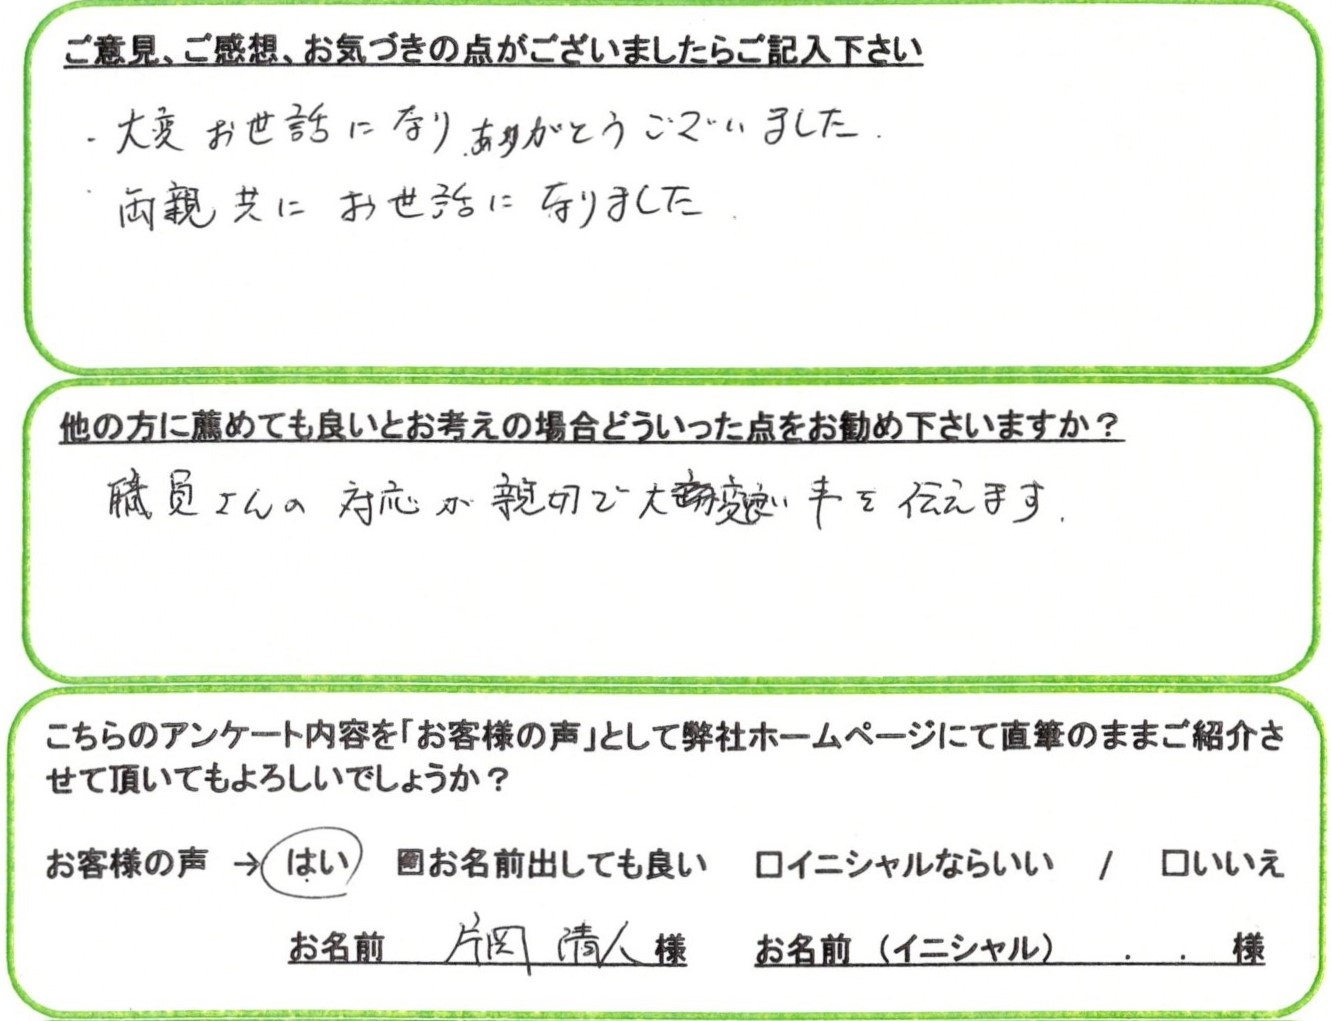 ご意見、ご感想、お気づきの点がございましたらご記入下さい
・大変お世話になりありがとうございました.
・両親共にお世話になりました.
他の方に薦めても良いとお考えの場合どういった点をお勧め下さいますか？
職員さんの対応が親切で大変良い事を伝えます.
こちらのアンケート内容を「お客様の声」として弊社ホームページにて直筆のままご紹介さ
せて頂いてもよろしいでしょうか？
お客様の声 →はい ☑お名前出しても良い □イニシャルならいい / □いいえ
お名前 片岡 清人 様 お名前（イニシャル） . . 様